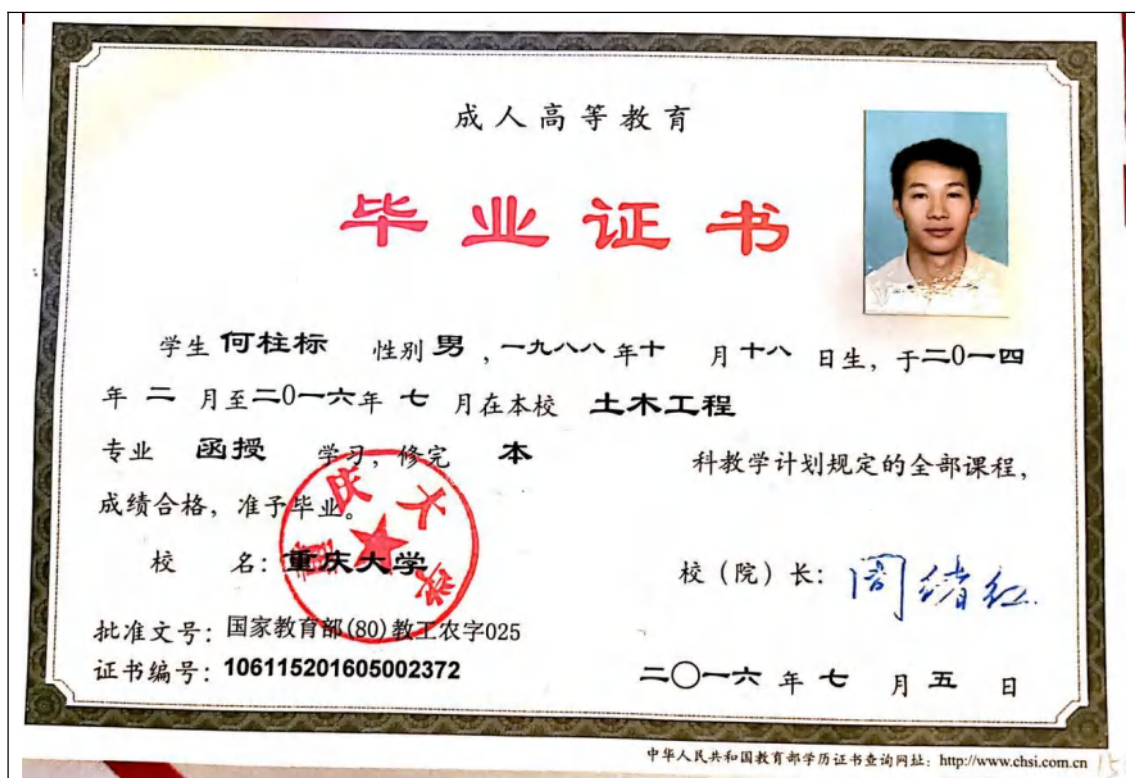 成人高等教育
毕业证书
学生 何柱标 性别 男 ，一九八八 年 十 月 十八 日生，于二0一四
年 二 月至二0一六年 七 月在本校 土木工程
专业 函授 学习，修完 本 科教学计划规定的全部课程，
成绩合格，准予毕业。
重庆大学
校 名：重庆大学 校（院）长：周绪红
批准文号：国家教育部(80)教工农字025
证书编号：106115201605002372 二〇一六 年 七 月 五 日
中华人民共和国教育部学历证书查询网址：http://www.chsi.com.cn 15